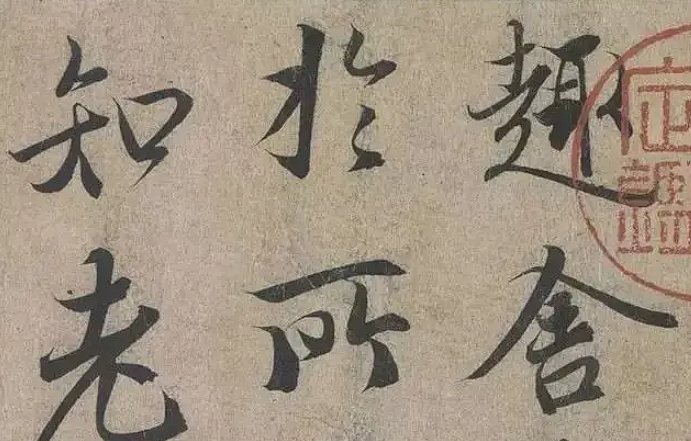 趣舍
於所
知老